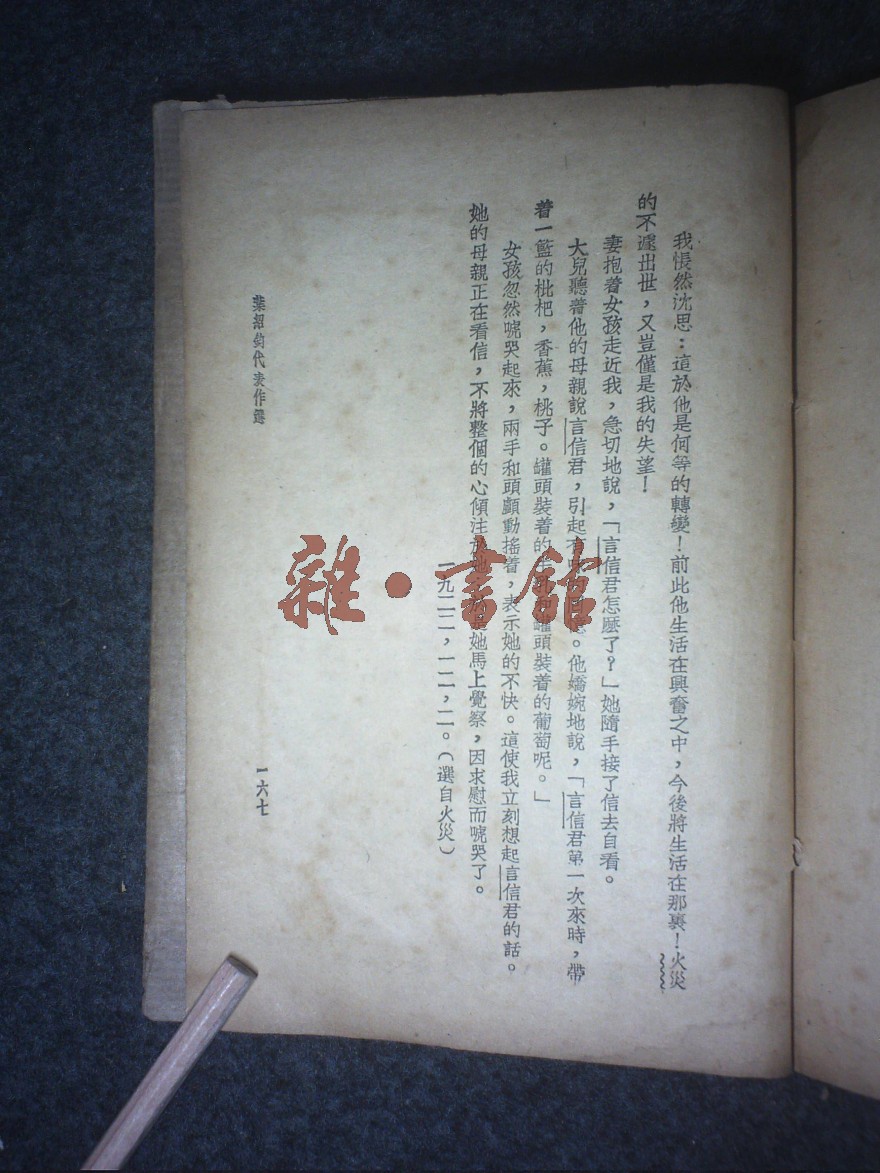 我悵然沈思：這於他是何等的轉變！前此他生活在興奮之中，今後將生活在那裏！火災
的不遽出世，又豈僅是我的失望！
妻抱着女孩走近我，急切地說，「言信君怎麼了？」她隨手接了信去自看。
大兒聽着他的母親說言信君，引起。他嬌婉地說，「言信君第一次來時，帶
着一籃的枇杷，香蕉，桃子。罐頭裝着的罐頭裝着的葡萄呢。」
女孩忽然號哭起來，兩手和頭顱動搖着，表示她的不快。這使我立刻想起言信君的話。
她的母親正在看信，不將整個的心傾注於她馬上覺察，因求慰而號哭了。
一九二二，一二，二。（選自火災）
葉紹鈞代表作選
一六七
雜·書館